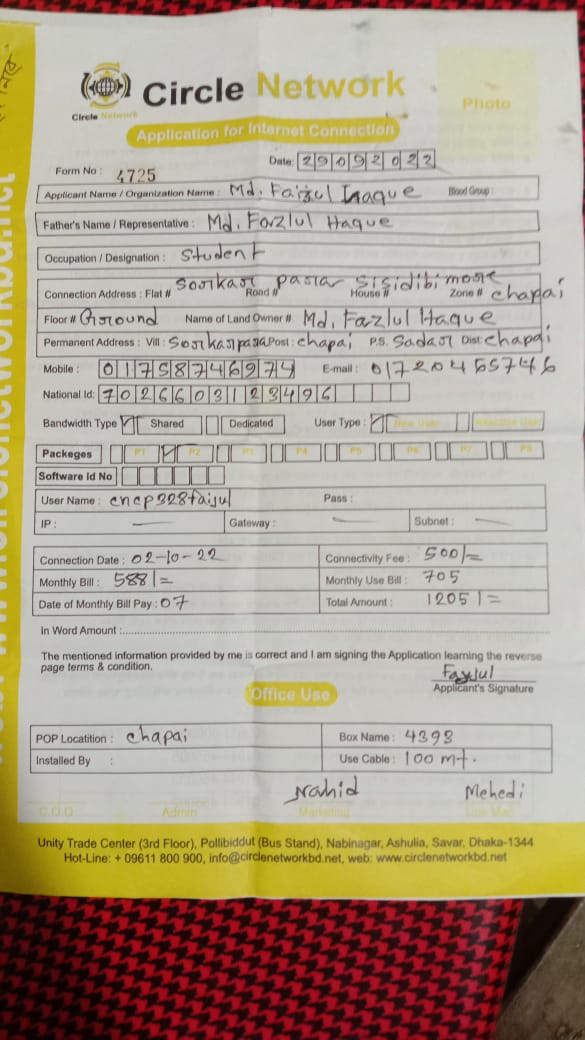 Circle Network
Circle Network
Photo
Application for Internet Connection
Date: 29092022
Form No : 4725
Applicant Name / Organization Name : Md. Faizul Haque Blood Group :
Father's Name / Representative : Md. Fazlul Haque
Occupation / Designation : Student
Connection Address : Flat # Sorkar para Road # Sisidibi more House # Zone # chapai
Floor # Ground Name of Land Owner # Md. Fazlul Haque
Permanent Address : Vill : Sorkarpara Post : chapai P.S. Sadar Dist: chapai
Mobile : 01758746974 E-mail : 01720455746
National Id: 7026603123496
Bandwidth Type Shared Dedicated User Type : New User
Packeges P1 P2 P3 P4 P5 P6 P7 P8
Software Id No
User Name : cncp328faijul Pass :
IP : — Gateway : — Subnet : —
Connection Date : 02-10-22 Connectivity Fee : 500/=
Monthly Bill : 588/= Monthly Use Bill : 705
Date of Monthly Bill Pay : 07 Total Amount : 1205/=
In Word Amount :
The mentioned information provided by me is correct and I am signing the Application learning the reverse
page terms & condition.
Fayjul
Applicant's Signature
Office Use
POP Locatition : chapai Box Name : 4393
Installed By : Use Cable : 100 mt.
Nahid Mehedi
C.O.O Admin Marketing
Unity Trade Center (3rd Floor), Pollibiddut (Bus Stand), Nabinagar, Ashulia, Savar, Dhaka-1344
Hot-Line: + 09611 800 900, info@circlenetworkbd.net, web: www.circlenetworkbd.net